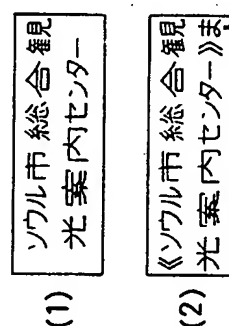 (1)
ソウル市総合観
光案内センター
(2)
《ソウル市総合観
光案内センター》ま